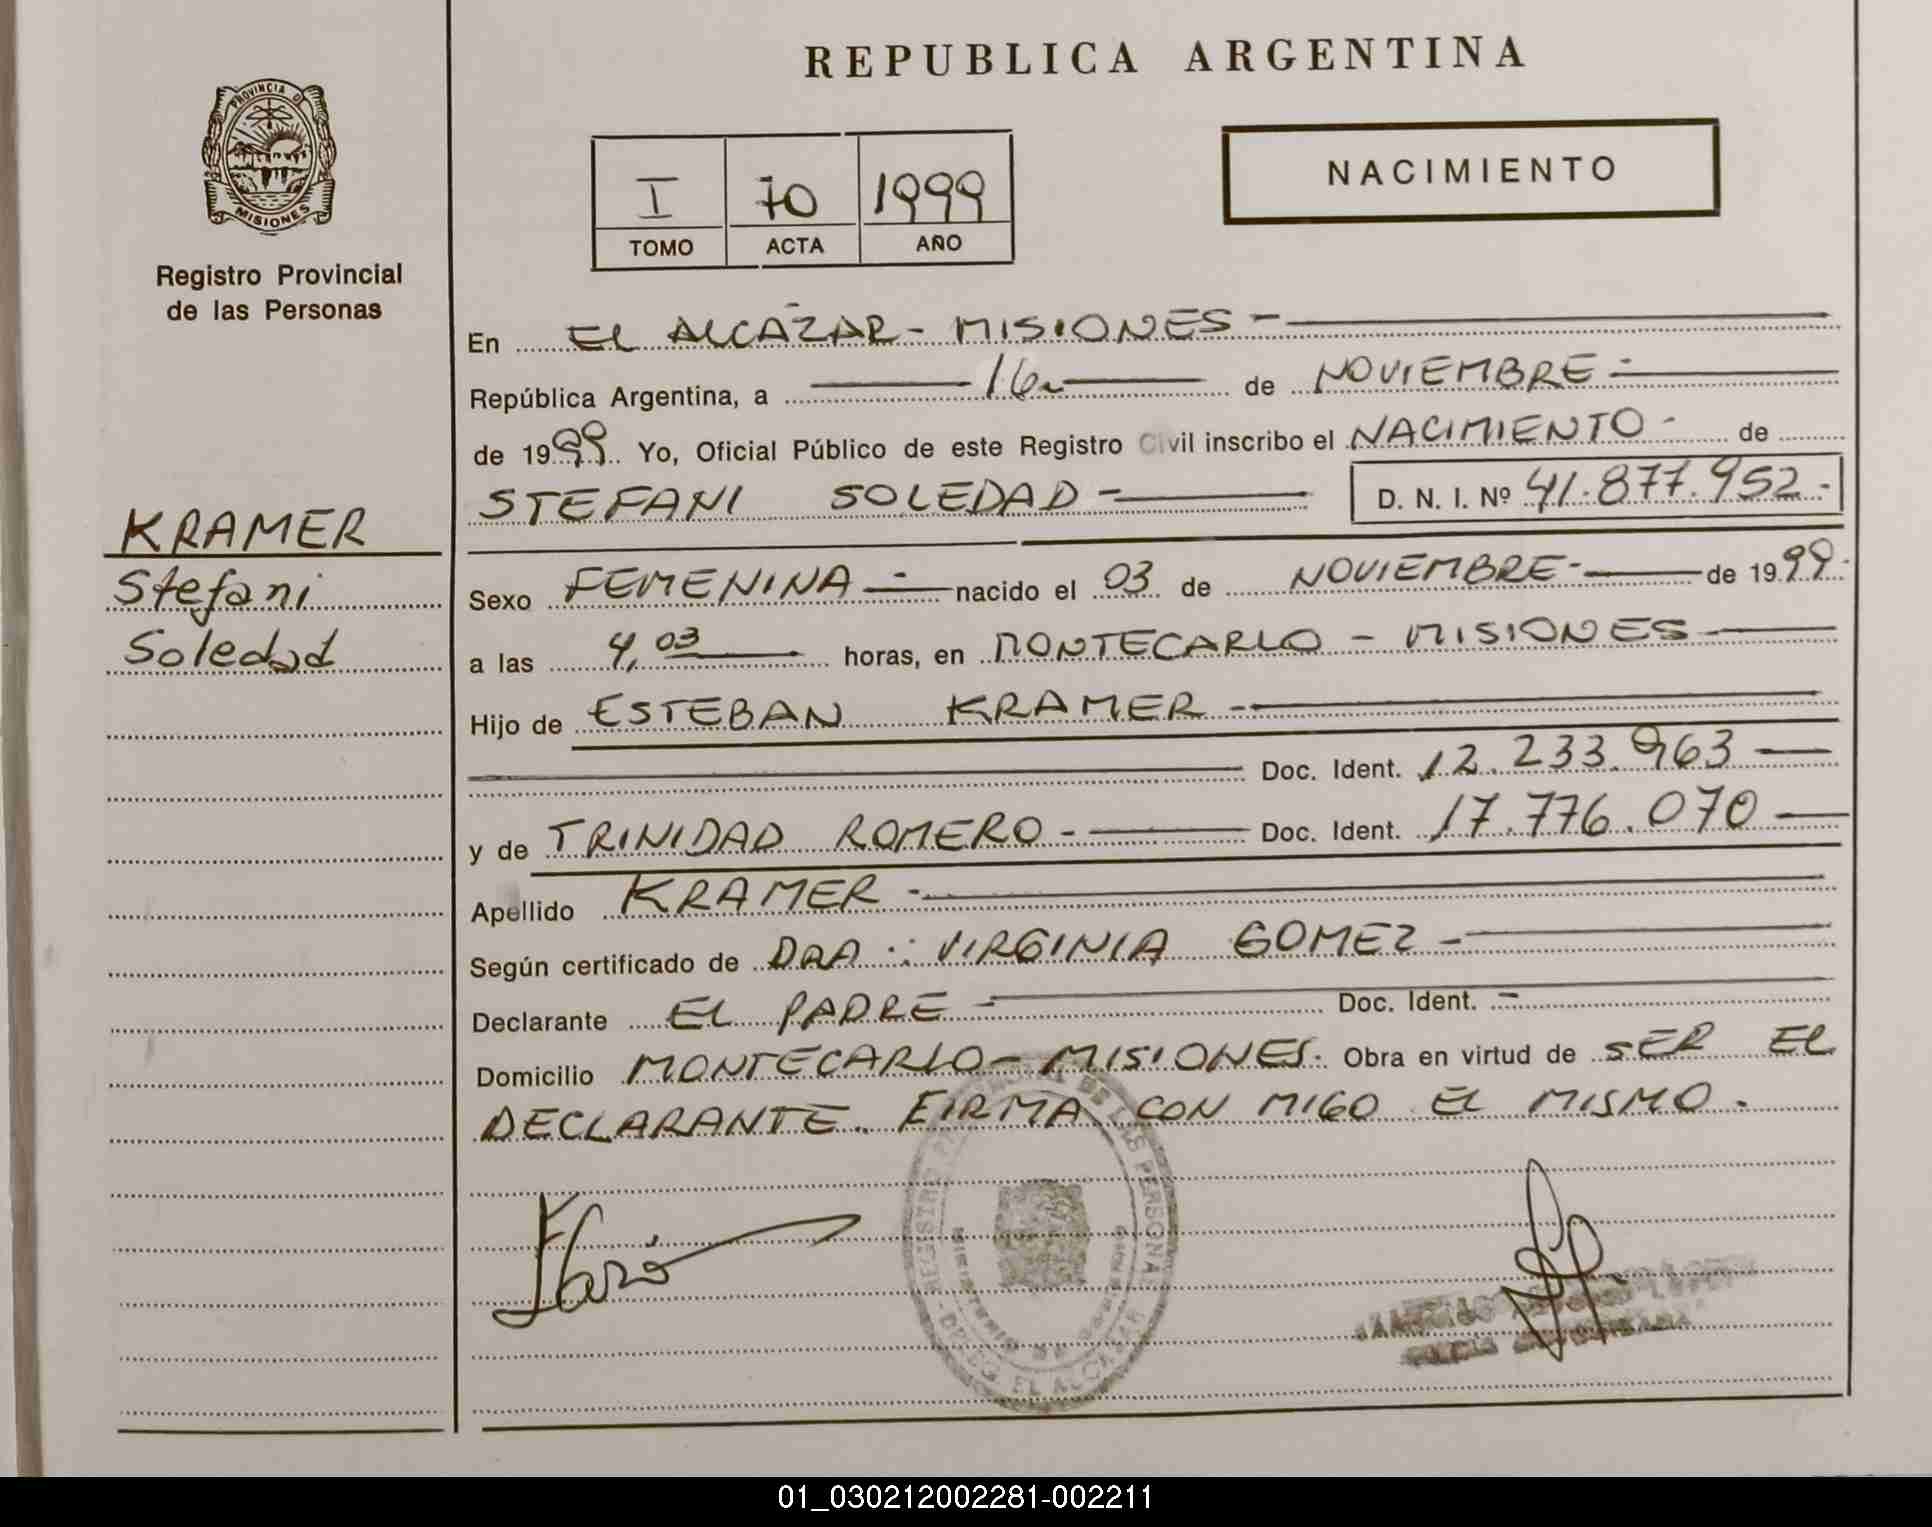 REPUBLICA ARGENTINA
PROVINCIA D
MISIONES
Registro Provincial
de las Personas
I 70 1999
TOMO ACTA AÑO
NACIMIENTO
En EL ALCAZAR - MISIONES -
República Argentina, a 16 de NOVIEMBRE -
de 1999 Yo, Oficial Público de este Registro Civil inscribo el NACIMIENTO - de
STEFANI SOLEDAD - D. N. I. Nº 41.877.952.-
KRAMER
Stefani
Soledad
Sexo FEMENINA - nacido el 03 de NOVIEMBRE - de 1999.
a las 4,03 horas, en MONTECARLO - MISIONES
Hijo de ESTEBAN KRAMER -
Doc. Ident. 12.233.963
y de TRINIDAD ROMERO - Doc. Ident. 17.776.070
Apellido KRAMER -
Según certificado de DRA. VIRGINIA GOMEZ -
Declarante EL PADRE - Doc. Ident. -
Domicilio MONTECARLO - MISIONES. Obra en virtud de SER EL
DECLARANTE. FIRMA CON MIGO EL MISMO.
DE LAS PERSONAS
EL ALCAZAR
01_030212002281-002211